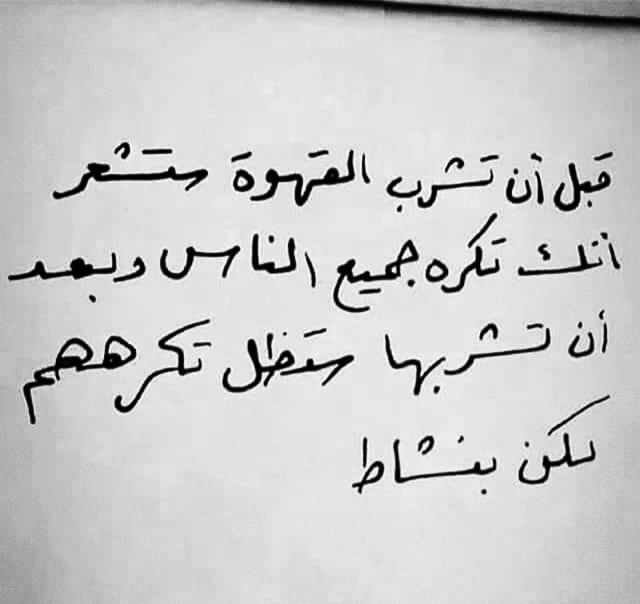 قبل أن تشرب القهوة ستشعر
أنك تكره جميع الناس وبعد
أن تشربها ستظل تكرههم
لكن بنشاط